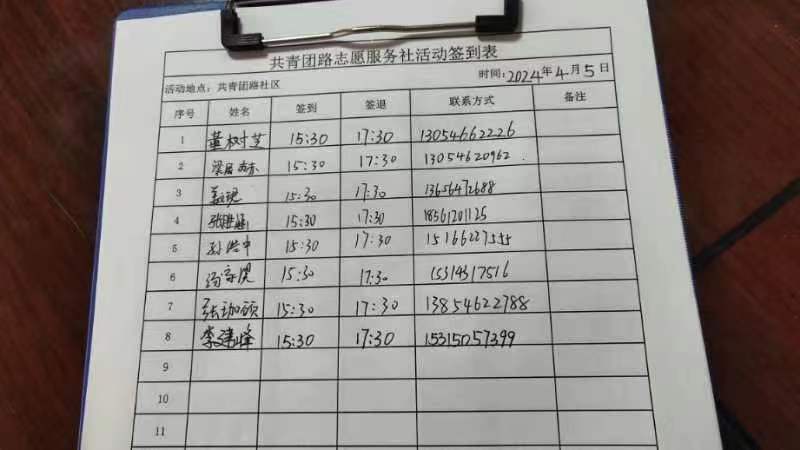 共青团路志愿服务社活动签到表
活动地点：共青团路社区 时间：2024年4月5日
序号 姓名 签到 签退 联系方式 备注
1 董树芝 15:30 17:30 13054662226
2 15:30 17:30 13054620962
3 15:30 17:30 13656472688
4 15:30 17:30 18561201125
5 孙洪中 15:30 17:30 15166227555
6 15:30 17:30 15314317516
7 张珈硕 15:30 17:30 13854622788
8 李建峰 15:30 17:30 15315057399
9
10
11